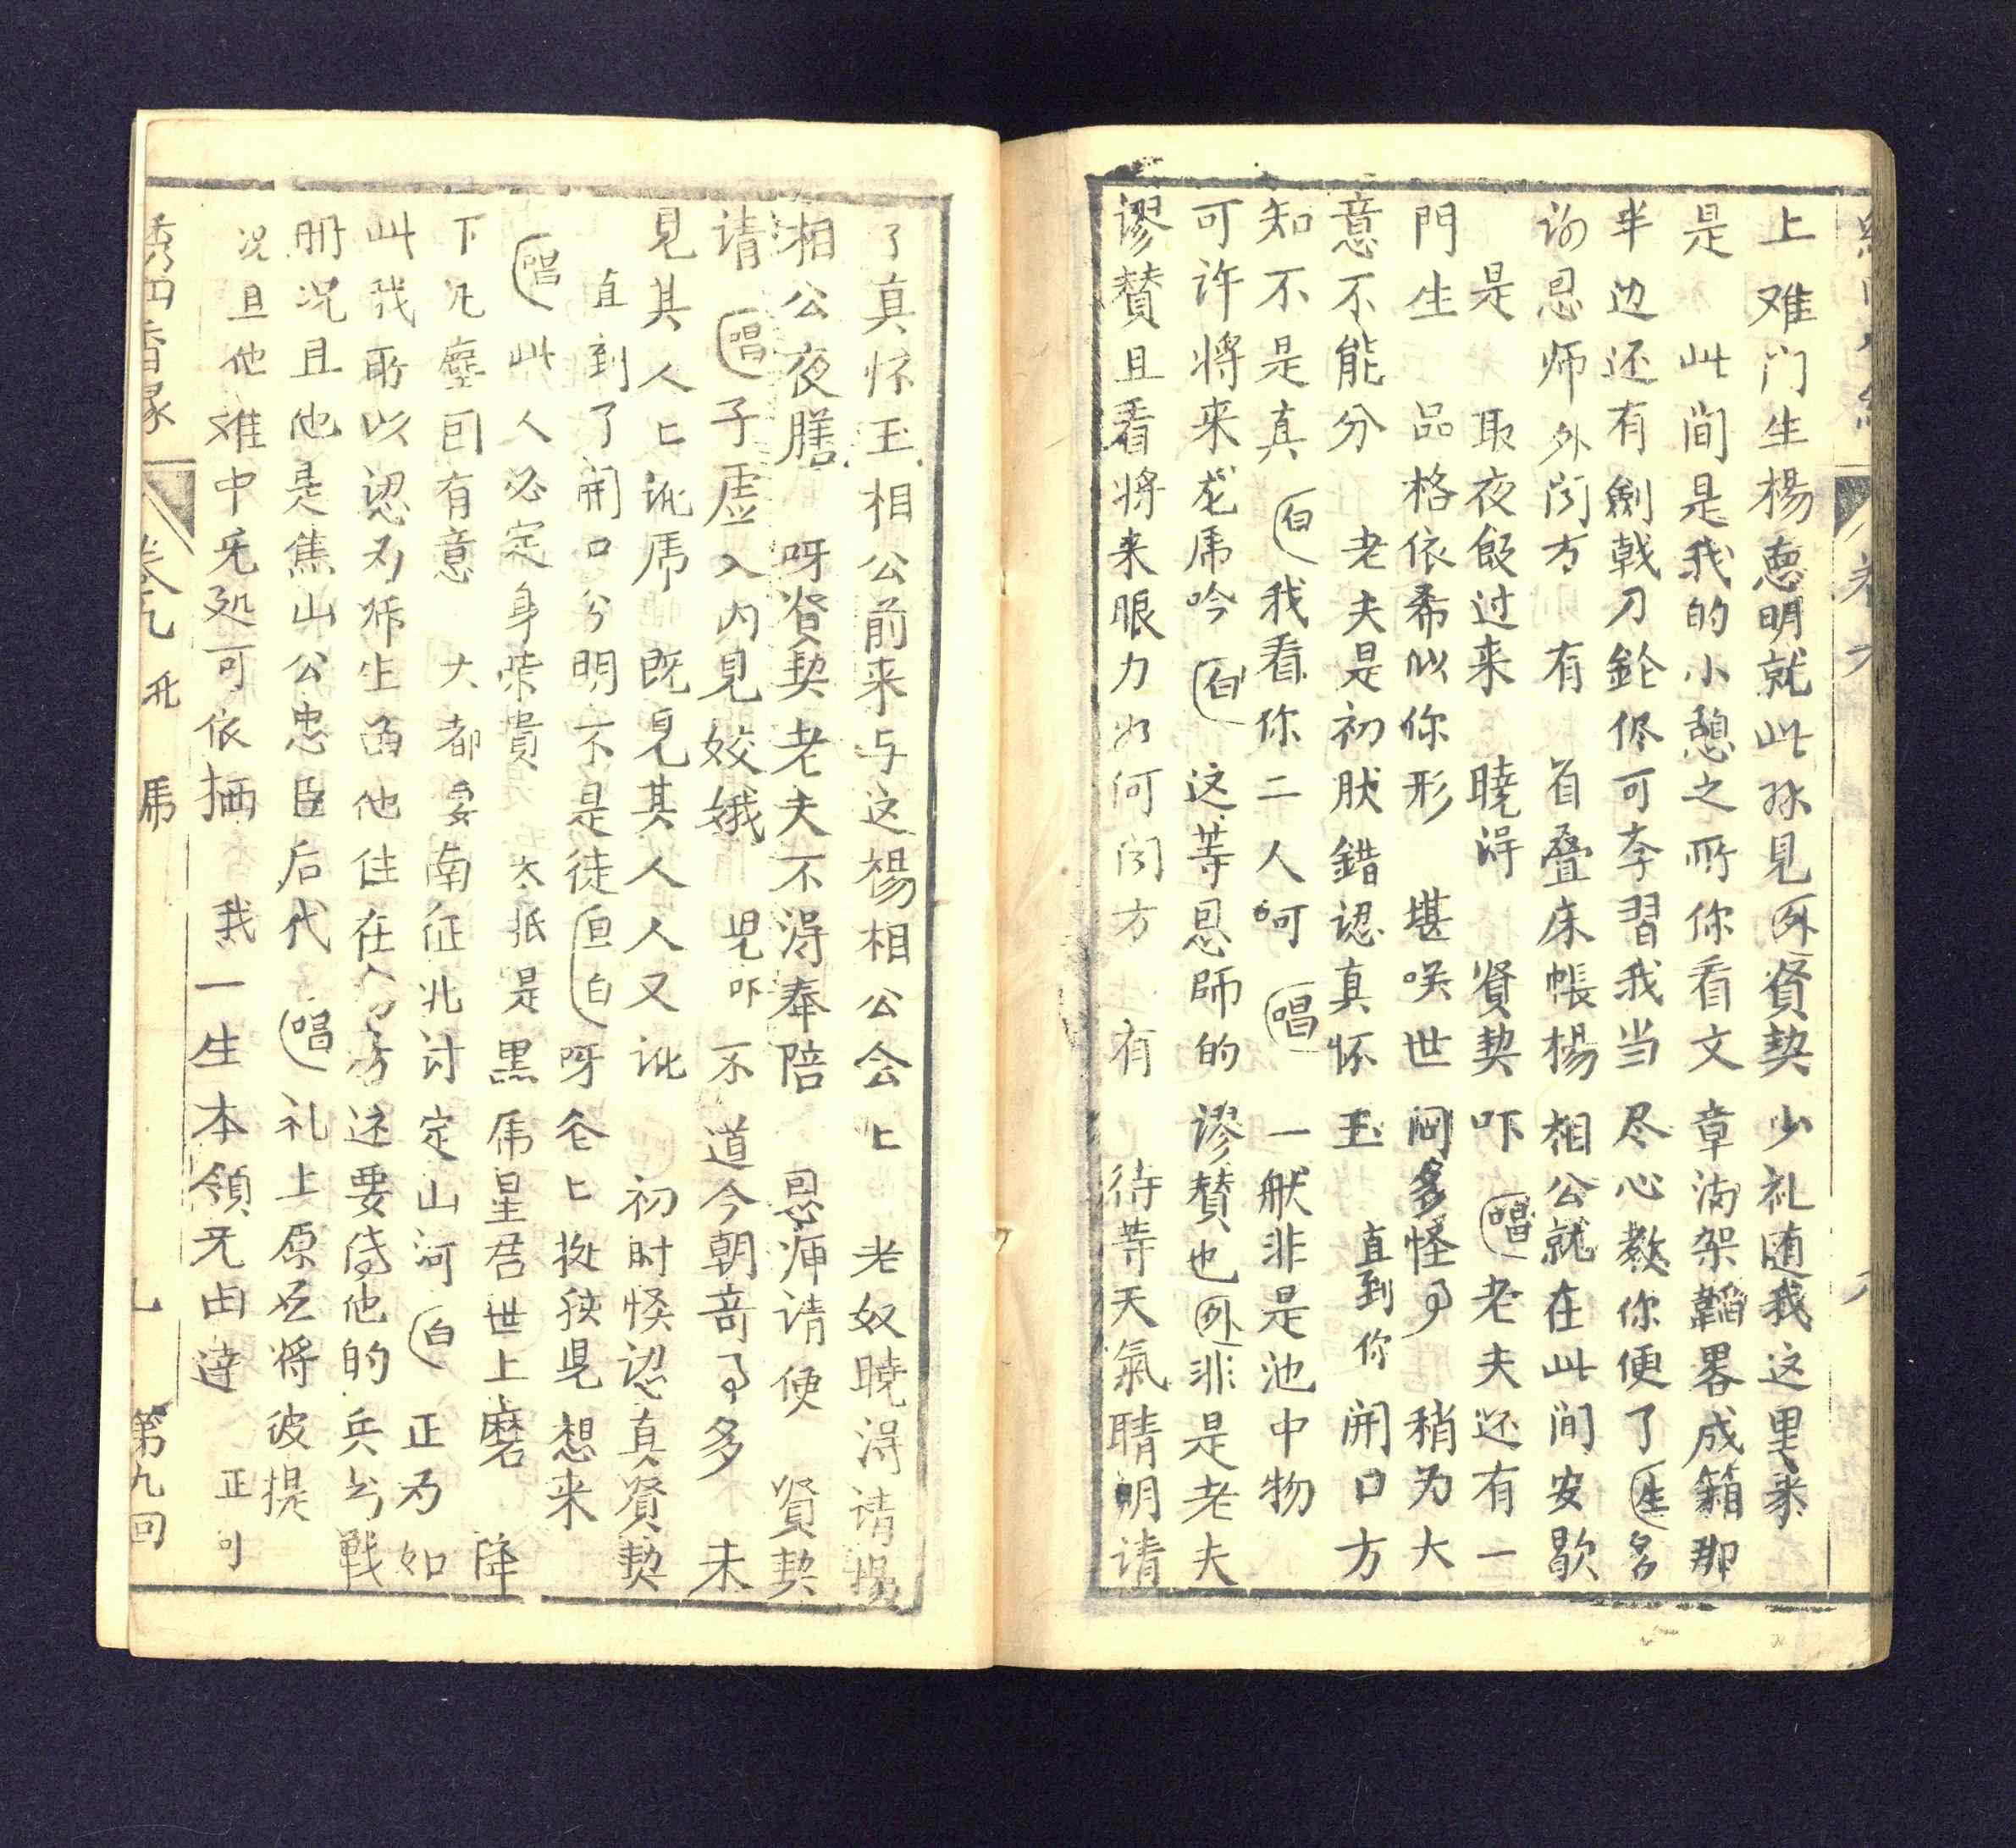 上难门生楊恵明就此孫見外賢契少礼随我这里来
是 此间是我的小憩之所你看文章满架韜畧成箱那
半边还有劍戟刀鎗侭可李習我当尽心教你便了生多
謝恩师外 有 首叠床帳楊相公就在此间安歇
是 取夜飯过来 曉得 賢契吓唱老夫还有一
門生 品格依希似你形 堪唉世间多怪事 稍为大
意不能分 老夫是初肰錯認真怀玉 直到你開口方
知不是真 白我看你二人呵唱一般非是池中物
可许将来龙虎吟 白 这等恩師的謬賛也外非是老夫
謬賛且看将来眼力如何 有 待等天氣晴明请
了真怀玉相公前来与这楊相公会匕 老奴曉淂请楊
相公夜膳 呀賢契老夫不淂奉陪 恩师请便 賢契
请 唱子虚入内見姣娥 児吓 不道今朝竒事多 未
見其人匕訛虎 既見其人人又訛 初时悮認真賢契
直到了開口分明不是徒 白呀 想来
唱此人必定身荣貴 太抵是黑虎星君世上磨 降
下凡塵囙有意 大都要南征北讨定山河 白 正为如
此我所以認为师生留他住在 还要 他的兵 戰
册况且他是焦山公忠臣后代 唱礼上原应将彼提
况且他难中旡処可依栖 我一生本領旡由達 正可
綉四香縁 卷九 虎 九 第九回